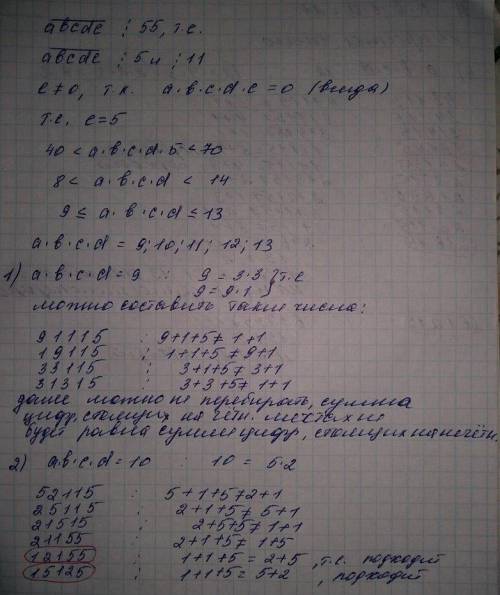 abcde ⋮ 55, т.е.
abcde ⋮ 5 и ⋮ 11
e≠0, т.к. a·b·c·d·e = 0 (всегда)
т.е. e=5
40 < a·b·c·d·5 < 70
8 < a·b·c·d < 14
9 ≤ a·b·c·d ≤ 13
a·b·c·d = 9; 10; 11; 12; 13
1) a·b·c·d = 9 : 9 = 3·3 } т.е
9 = 9·1
можно составить такие числа:
91115 ; 9+1+5≠1+1
19115 ; 1+1+5≠9+1
33115 ; 3+1+5≠3+1
31315 ; 3+3+5≠1+1
даже можно не перебирать, сумма
цифр, стоящих на чётн. местах не
будет равна сумме цифр, стоящих на нечётн.
2) a·b·c·d = 10 10 = 5·2
52115 ; 5+1+5≠2+1
25115 ; 2+1+5≠5+1
21515 ; 2+5+5≠1+1
21155 ; 2+1+5≠1+5
12155 ; 1+1+5=2+5, т.е. подходит
15125 ; 1+1+5=5+2, подходит